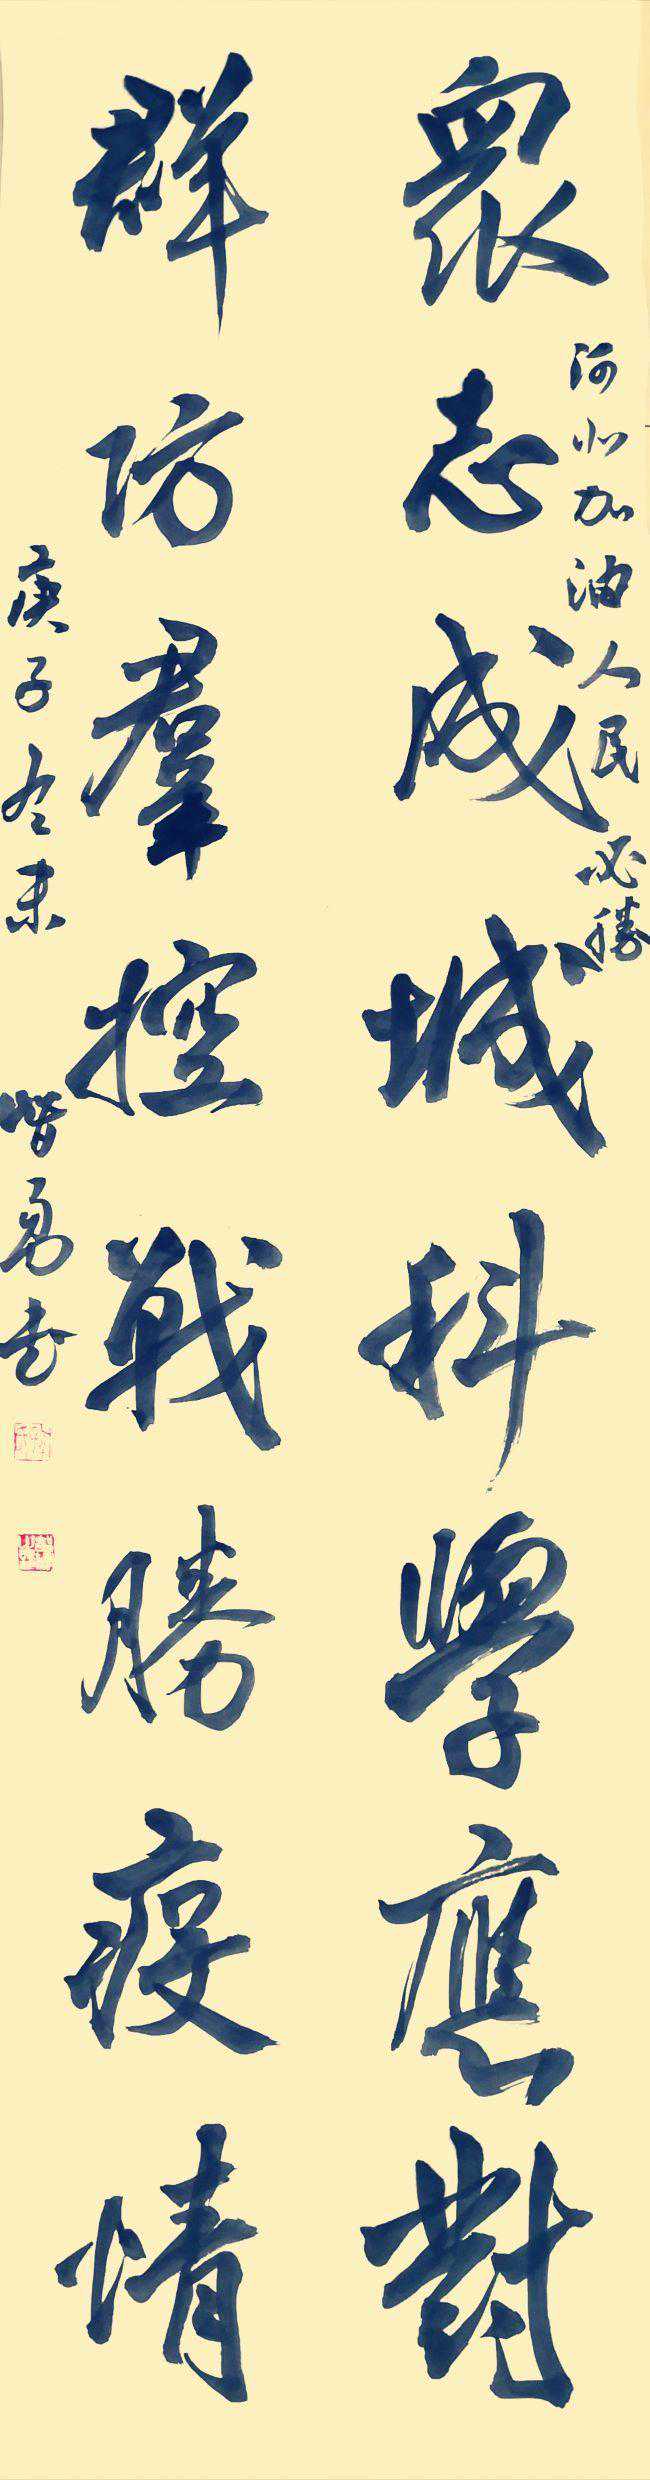 河北加油人民必勝
眾志成城科學應對
群防羣控戰勝疫情
庚子冬末
勇書